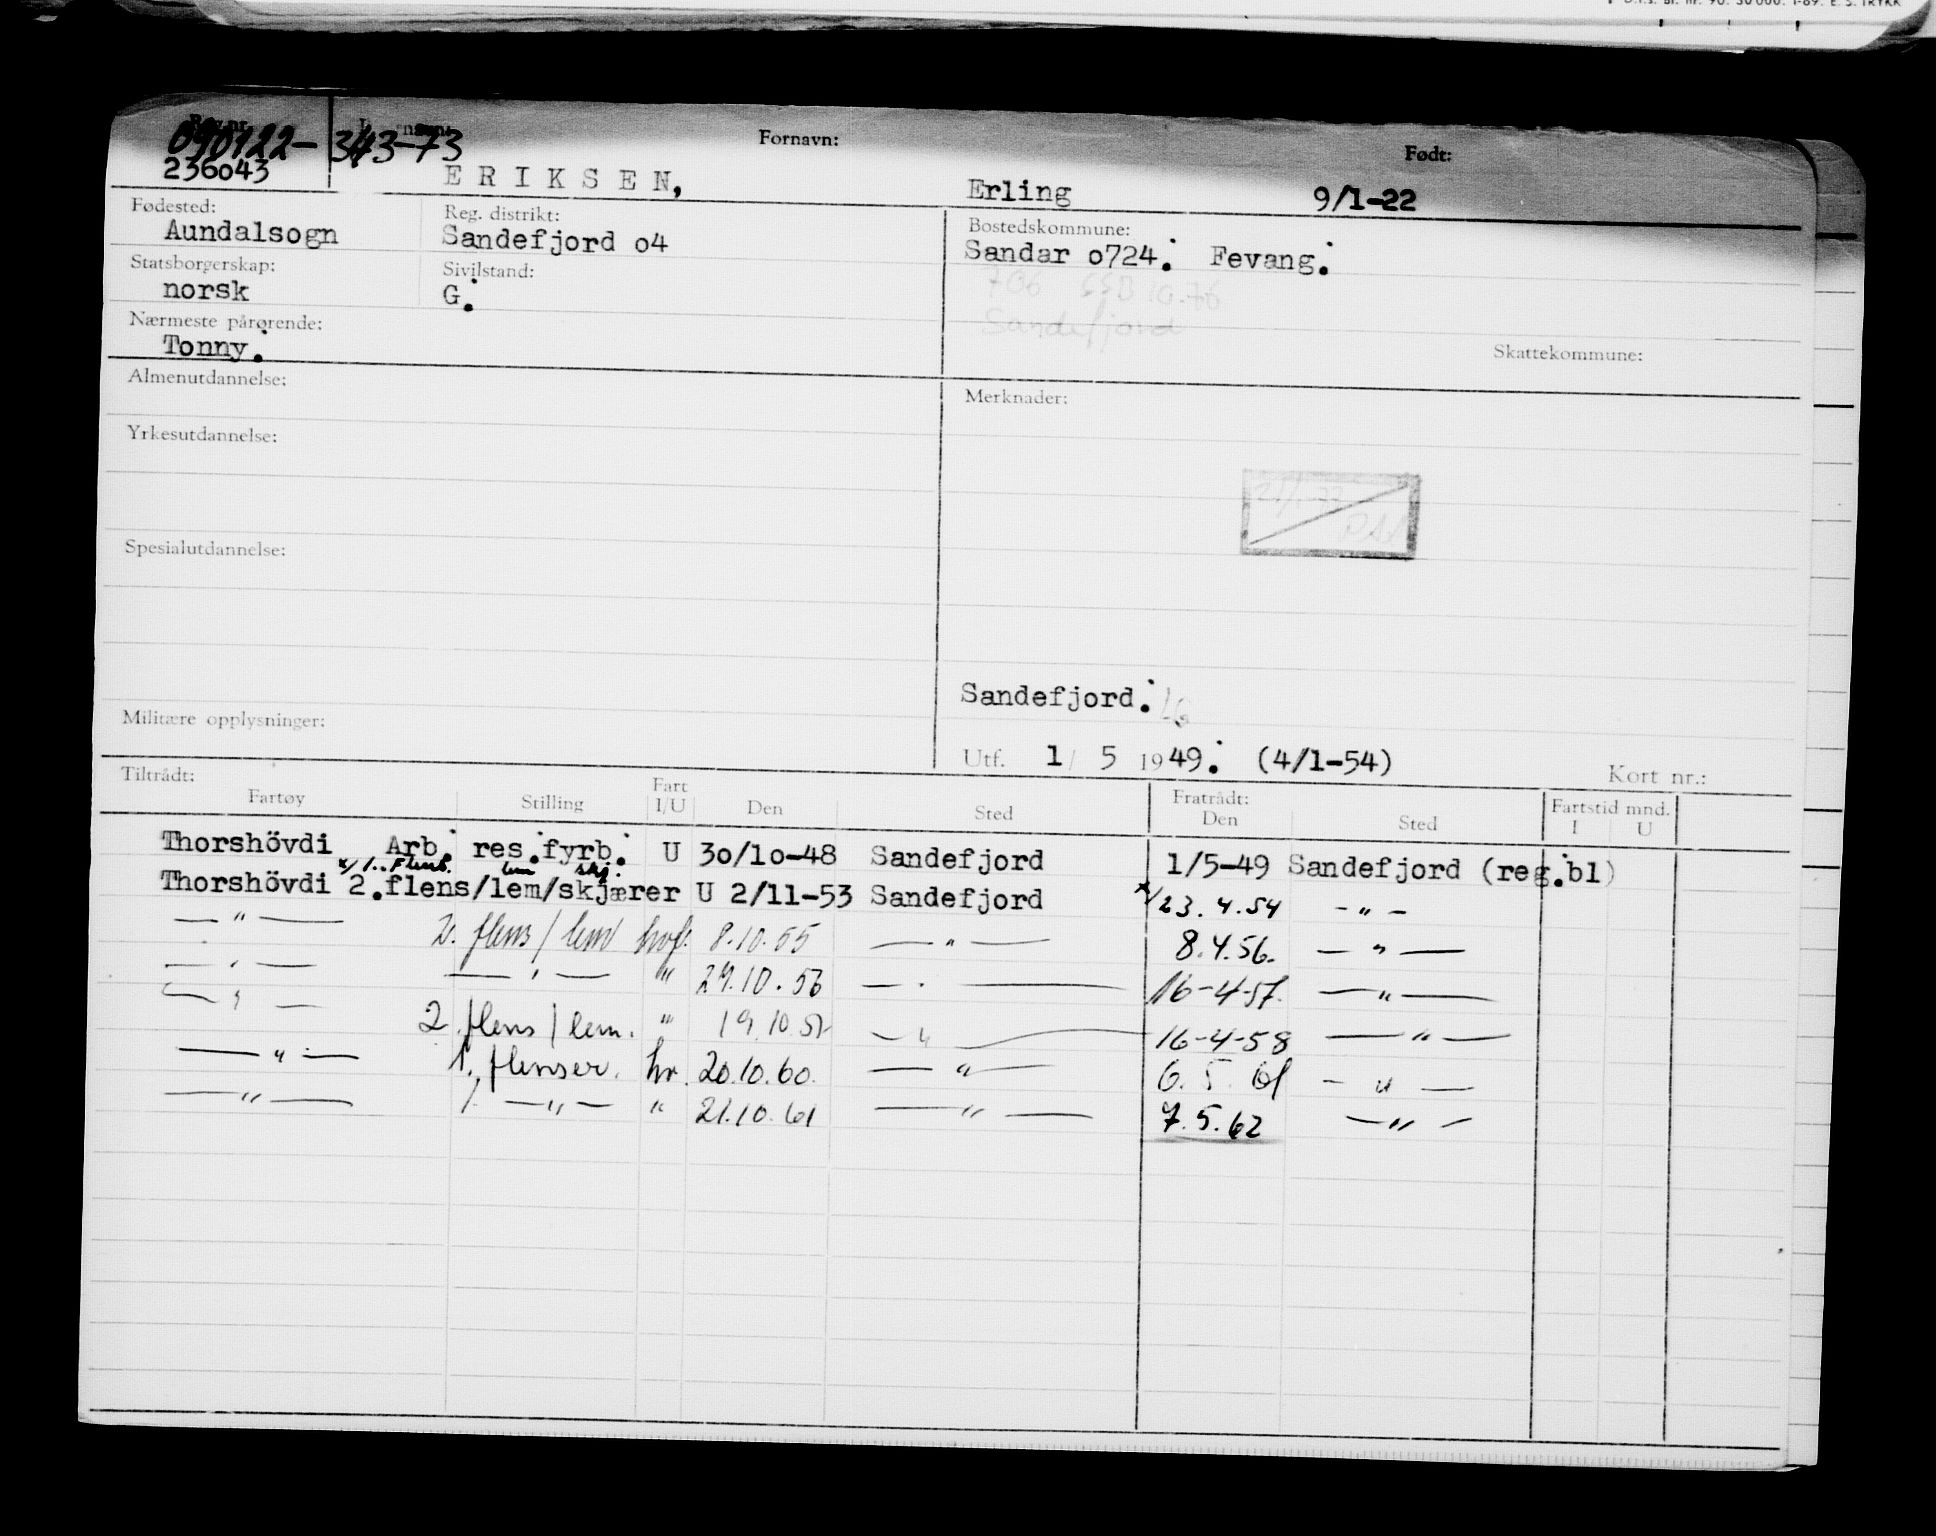 D.f.s. Bl. nr. 90. 50 000. 1-69. E. S. TRYKK
Reg.nr.
090122- 343-73
Fornavn: Født:
236043 ERIKSEN, Erling 9/1-22
Fødested: Reg. distrikt: Bostedskommune:
Aundalsogn Sandefjord o4 Sandar o724. Fevang.
Statsborgerskap: Sivilstand:
norsk G.
706 SSB 10.76
Sandefjord
Nærmeste pårørende:
Tonny. Skattekommune:
Almenutdannelse: Merknader:
Yrkesutdannelse:
Spesialutdannelse:
Sandefjord.
Militære opplysninger:
Utf. 1/ 5 1949. (4/1-54)
Tiltrådt: Kort nr.:
Fartøy Stilling Fart I/U Den Sted Fratrådt: Den Sted Fartstid mnd. I U
Thorshövdi Arb. res.fyrb. U 30/10-48 Sandefjord 1/5-49 Sandefjord (reg.bl)
x/1.. Flens. lem skj.
Thorshövdi 2.flens/lem/skjærer U 2/11-53 Sandefjord x/23.4.54 - " -
— " — 2. flens/lem hvf. 8.10.55 — " — 8.4.56. — " —
— " — — " — " 29.10.56 — " — 16-4-57. — " —
— " — 2. flens/lem. " 19.10.57 — " — 16-4-58 — " —
— " — 1. flenser. hv. 20.10.60. — " — 6.5.61 — " —
— " — 1. — " — " 21.10.61 — " — 7.5.62 — " —